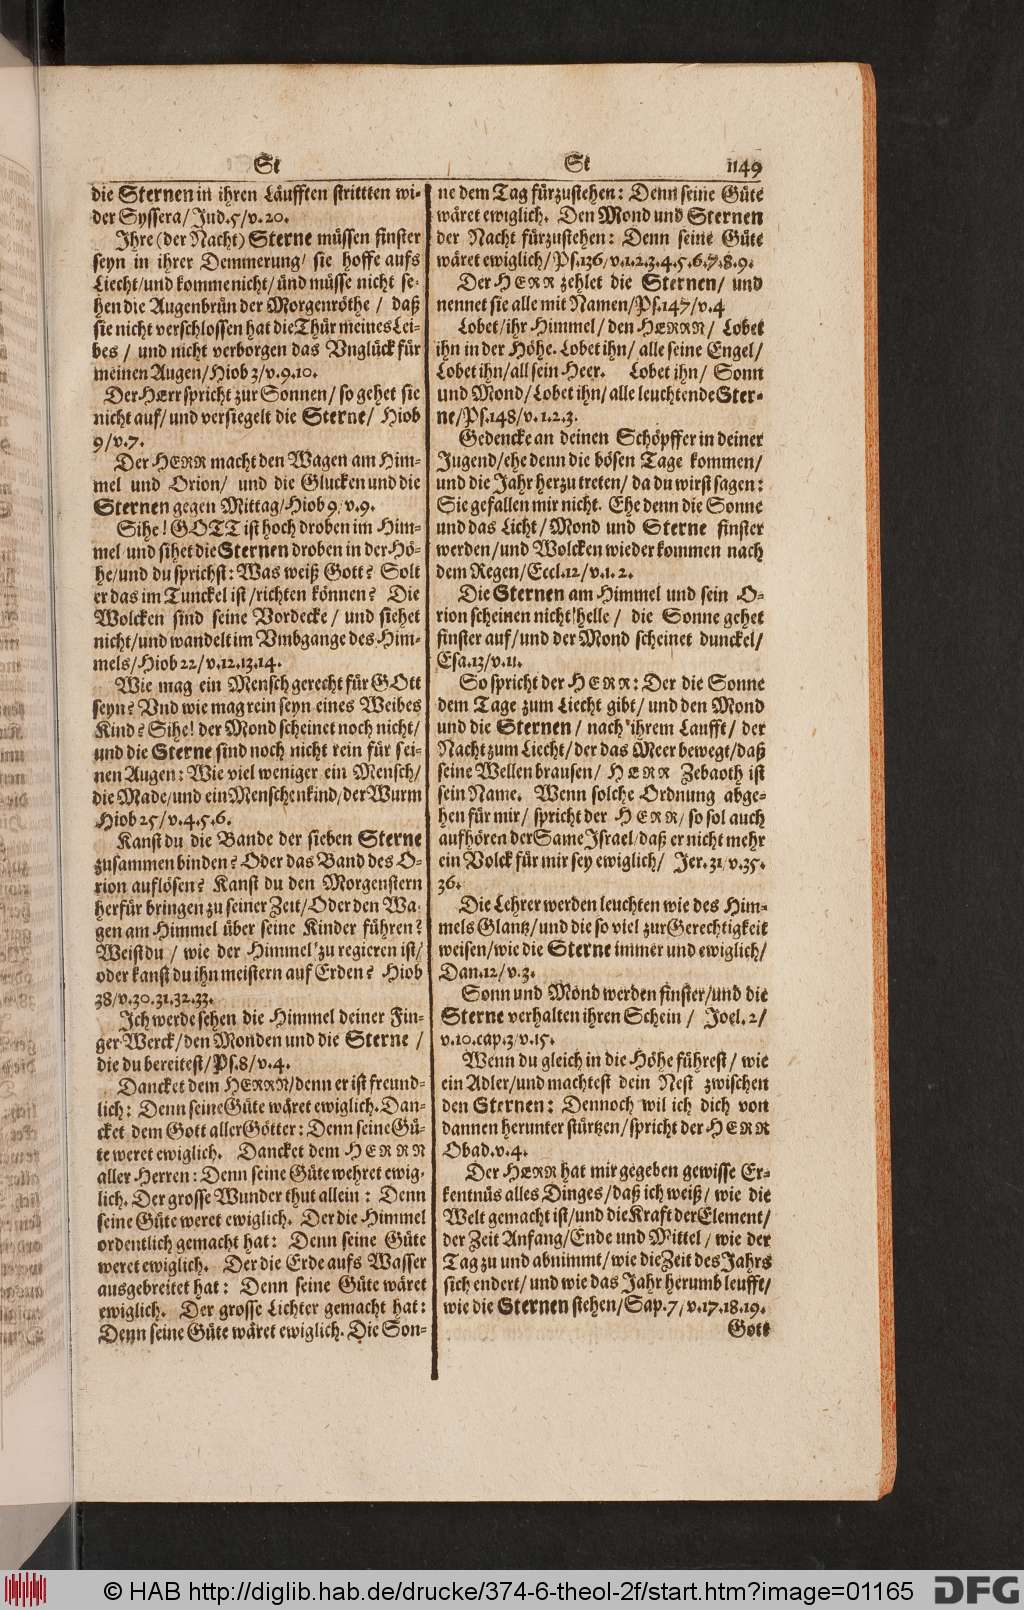 St
St
1149
die Sternen in ihren Läufften stritten wi-
der Syssera/ Jud.5/v.20.
Ihre (der Nacht) Sterne müssen finster
seyn in ihrer Demmerung/ sie hoffe aufs
Liecht/und komme nicht/ ünd müsse nicht se-
hen die Augenbrün der Morgenröthe / daß
sie nicht verschlossen hat die Thür meines Lei-
bes / und nicht verborgen das Vnglück für
meinen Augen/Hiob 3/v.9.10.
Der HErr spricht zur Sonnen/ so gehet sie
nicht auf/ und versiegelt die Sterne/ Hiob
9/v.7.
Der HERR macht den Wagen am Him-
mel und Orion/ und die Glucken und die
Sternen gegen Mittag/Hiob 9/v.9.
Sihe! GOTT ist hoch droben im Him-
mel und sihet die Sternen droben in der Hö-
he/und du sprichst: Was weiß Gott? Solt
er das im Tunckel ist/richten können? Die
Wolcken sind seine Vordecke/ und siehet
nicht/und wandelt im Vmbgange des Him-
mels/Hiob 22/v.12.13.14.
Wie mag ein Mensch gerecht für GOtt
seyn? Vnd wie mag rein seyn eines Weibes
Kind? Sihe! der Mond scheinet noch nicht/
und die Sterne sind noch nicht rein für sei-
nen Augen: Wie viel weniger ein Mensch/
die Made/und ein Menschenkind/der Wurm
Hiob 25/v.4.5.6.
Kanst du die Bande der sieben Sterne
zusammen binden? Oder das Band des O-
rion auflösen? Kanst du den Morgenstern
herfür bringen zu seiner Zeit/Oder den Wa-
gen am Himmel über seine Kinder führen?
Weist du / wie der Himmel zu regieren ist/
oder kanst du ihn meistern auf Erden? Hiob
38/v.30.31.32.33.
Ich werde sehen die Himmel deiner Fin-
ger Werck/den Monden und die Sterne /
die du bereitest/Ps.8/v.4.
Dancket dem HERRN/denn er ist freund-
lich: Denn seine Güte wäret ewiglich. Dan-
cket dem Gott aller Götter: Denn seine Gü-
te weret ewiglich. Dancket dem HERRN
aller Herren: Denn seine Güte wehret ewig-
lich. Der grosse Wunder thut allein: Denn
seine Güte weret ewiglich. Der die Himmel
ordentlich gemacht hat: Denn seine Güte
weret ewiglich. Der die Erde aufs Wasser
ausgebreitet hat: Denn seine Güte wäret
ewiglich. Der grosse Lichter gemacht hat:
Denn seine Güte wäret ewiglich. Die Son-
ne dem Tag fürzustehen: Denn seine Güte
wäret ewiglich. Den Mond und Sternen
der Nacht fürzustehen: Denn seine Güte
wäret ewiglich/Ps.136/v.1.2.3.4.5.6.7.8.9.
Der HERR zehlet die Sternen/ und
nennet sie alle mit Namen/Ps.147/v.4
Lobet/ihr Himmel/den HERRN/ Lobet
ihn in der Höhe. Lobet ihn/ alle seine Engel/
Lobet ihn/all sein Heer. Lobet ihn/ Sonn
und Mond/Lobet ihn/alle leuchtende Ster-
ne/Ps.148/v.1.2.3.
Gedencke an deinen Schöpffer in deiner
Jugend/ehe denn die bösen Tage kommen/
und die Jahr herzu treten/ da du wirst sagen:
Sie gefallen mir nicht. Ehe denn die Sonne
und das Licht/ Mond und Sterne finster
werden/und Wolcken wieder kommen nach
dem Regen/Eccl.12/v.1.2.
Die Sternen am Himmel und sein O-
rion scheinen nicht helle/ die Sonne gehet
finster auf/und der Mond scheinet dunckel/
Esa.13/v.11.
So spricht der HERR: Der die Sonne
dem Tage zum Liecht gibt/ und den Mond
und die Sternen/ nach ihrem Laufft/ der
Nacht zum Liecht/der das Meer bewegt/daß
seine Wellen brausen/ HERR Zebaoth ist
sein Name. Wenn solche Ordnung abge-
hen für mir/ spricht der HERR/ so sol auch
aufhören der Same Israel/daß er nicht mehr
ein Volck für mir sey ewiglich/ Jer.31/v.35.
36.
Die Lehrer werden leuchten wie des Him-
mels Glantz/und die so viel zur Gerechtigkeit
weisen/wie die Sterne immer und ewiglich/
Dan.12/v.3.
Sonn und Mond werden finster/und die
Sterne verhalten ihren Schein / Joel.2/
v.10.cap.3/v.15.
Wenn du gleich in die Höhe führest/ wie
ein Adler/und machtest dein Nest zwischen
den Sternen: Dennoch wil ich dich von
dannen herunter stürtzen/spricht der HERR
Obad.v.4.
Der HERR hat mir gegeben gewisse Er-
kentnüs alles Dinges/daß ich weiß/ wie die
Welt gemacht ist/und die Kraft der Element/
der Zeit Anfang/Ende und Mittel/ wie der
Tag zu und abnimmt/wie die Zeit des Jahrs
sich endert/ und wie das Jahr herumb leufft/
wie die Sternen stehen/Sap.7/v.17.18.19.
Gott
© HAB http://diglib.hab.de/drucke/374-6-theol-2f/start.htm?image=01165
DFG